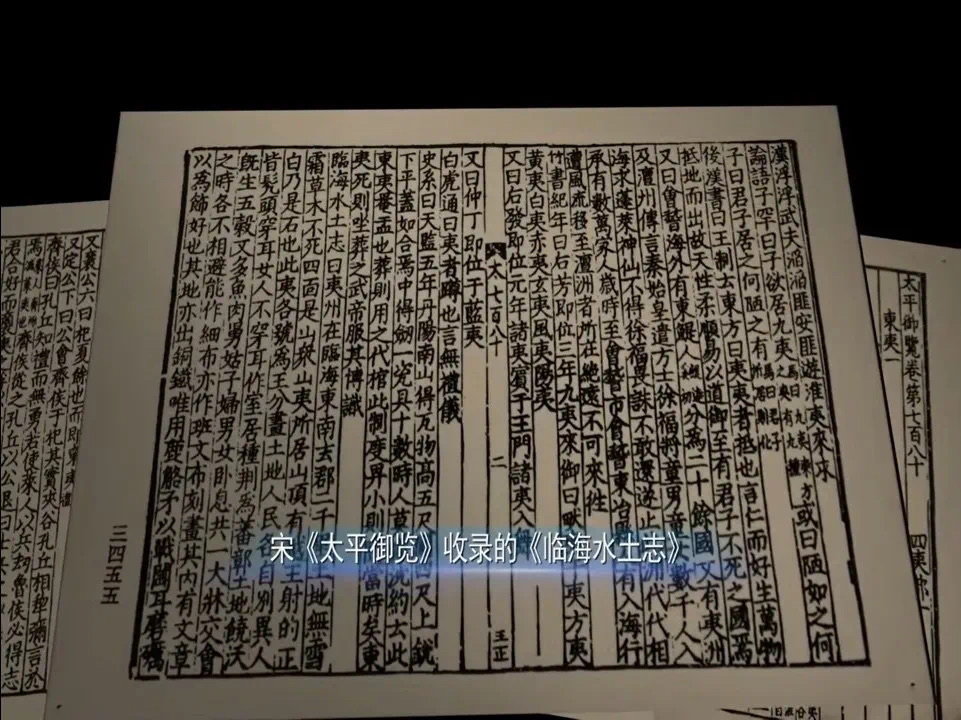 太平御覽卷第七百八十 四夷部一
東夷一
漢浮浮武夫滔滔匪安匪遊淮夷來求
論語子罕曰子欲居九夷馬曰九夷東方之夷有九種或曰陋如之何
子曰君子居之何陋之有馬曰君子所居則化
後漢書曰王制去東方曰夷夷者抵也言仁而好生萬物
抵地而出故天性柔順易以道御至有君子不死之國焉
又曰會稽海外有東鯷人分為二十餘國又有夷洲
及澶州傳言秦始皇遣方士徐福將童男童女數千人入
海求蓬萊神仙不得徐福畏誅不敢還遂止此洲代代相
承有數萬家人歲時至會稽市會稽東冶縣人有入海行
遭風流移至澶洲者所在絕遠不可來往
竹書紀年曰后芳即位三年九夷來御曰畎夷于夷方夷
黃夷白夷赤夷玄夷風夷陽夷
又曰后發即位元年諸夷賓于王門諸夷入舞
太七百八十 二 王正
又曰仲丁即位于藍夷
白虎通曰夷者蹲也言無禮儀
史系曰天監五年丹陽南山得瓦物高五尺圍四尺上銳
下平蓋如合焉中得劔一瓷具十數時人莫識沈約云此
東夷罨盂也葬則用之代棺此制度卑小則隨當時矣東
夷死則坐葬之武帝服其博識
臨海水土志曰夷州在臨海東南去郡二千里土地無雪
霜草木不死四面是山谿山夷所居山頂有越王射的正
白乃是石也此夷各號為王分畫土地人民各自別異人
皆髠頭穿耳女人不穿耳作室居種荆為蕃鄣土地饒沃
既生五穀又多魚肉舅姑子婦男女卧息共一大牀交會
之時各不相避能作細布亦作班文布刻畫其內有文章
以為飾好也其地亦出銅鐵唯用鹿觡矛以戰鬭耳磨礪
三四五五
宋《太平御览》收录的《临海水土志》